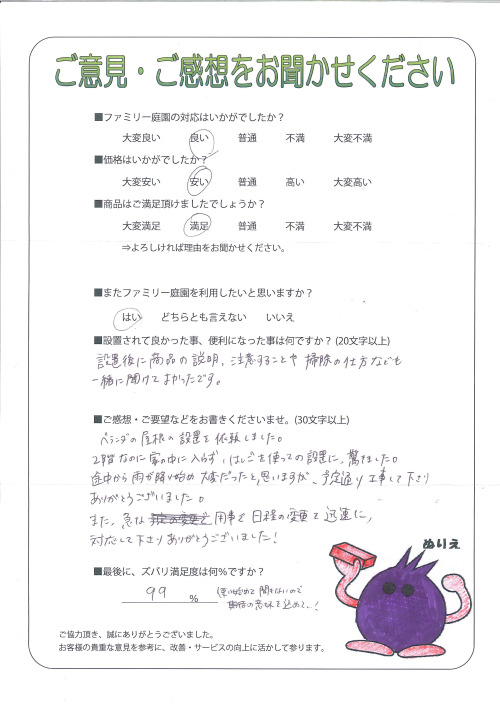 ご意見・ご感想をお聞かせください
■ファミリー庭園の対応はいかがでしたか？
大変良い 良い 普通 不満 大変不満
■価格はいかがでしたか？
大変安い 安い 普通 高い 大変高い
■商品はご満足頂けましたでしょうか？
大変満足 満足 普通 不満 大変不満
⇒よろしければ理由をお聞かせください。
■またファミリー庭園を利用したいと思いますか？
はい どちらとも言えない いいえ
■設置されて良かった事、便利になった事は何ですか？(20文字以上)
設置後に商品の説明、注意することや掃除の仕方なども
一緒に聞けてよかったです。
■ご感想・ご要望などをお書きくださいませ。(30文字以上)
ベランダの屋根の設置を依頼しました。
2階なのに家の中に入らず、はしごを使っての設置に、驚きました。
途中から雨が降り始め大変だったと思いますが、予定通り工事して下さり
ありがとうございました。
また、急な用事で日程の変更も迅速に、
対応して下さりありがとうございました！
■最後に、ズバリ満足度は何%ですか？
99 %
期待の意味も込めて…！
ぬりえ
ご協力頂き、誠にありがとうございました。
お客様の貴重な意見を参考に、改善・サービスの向上に活かして参ります。